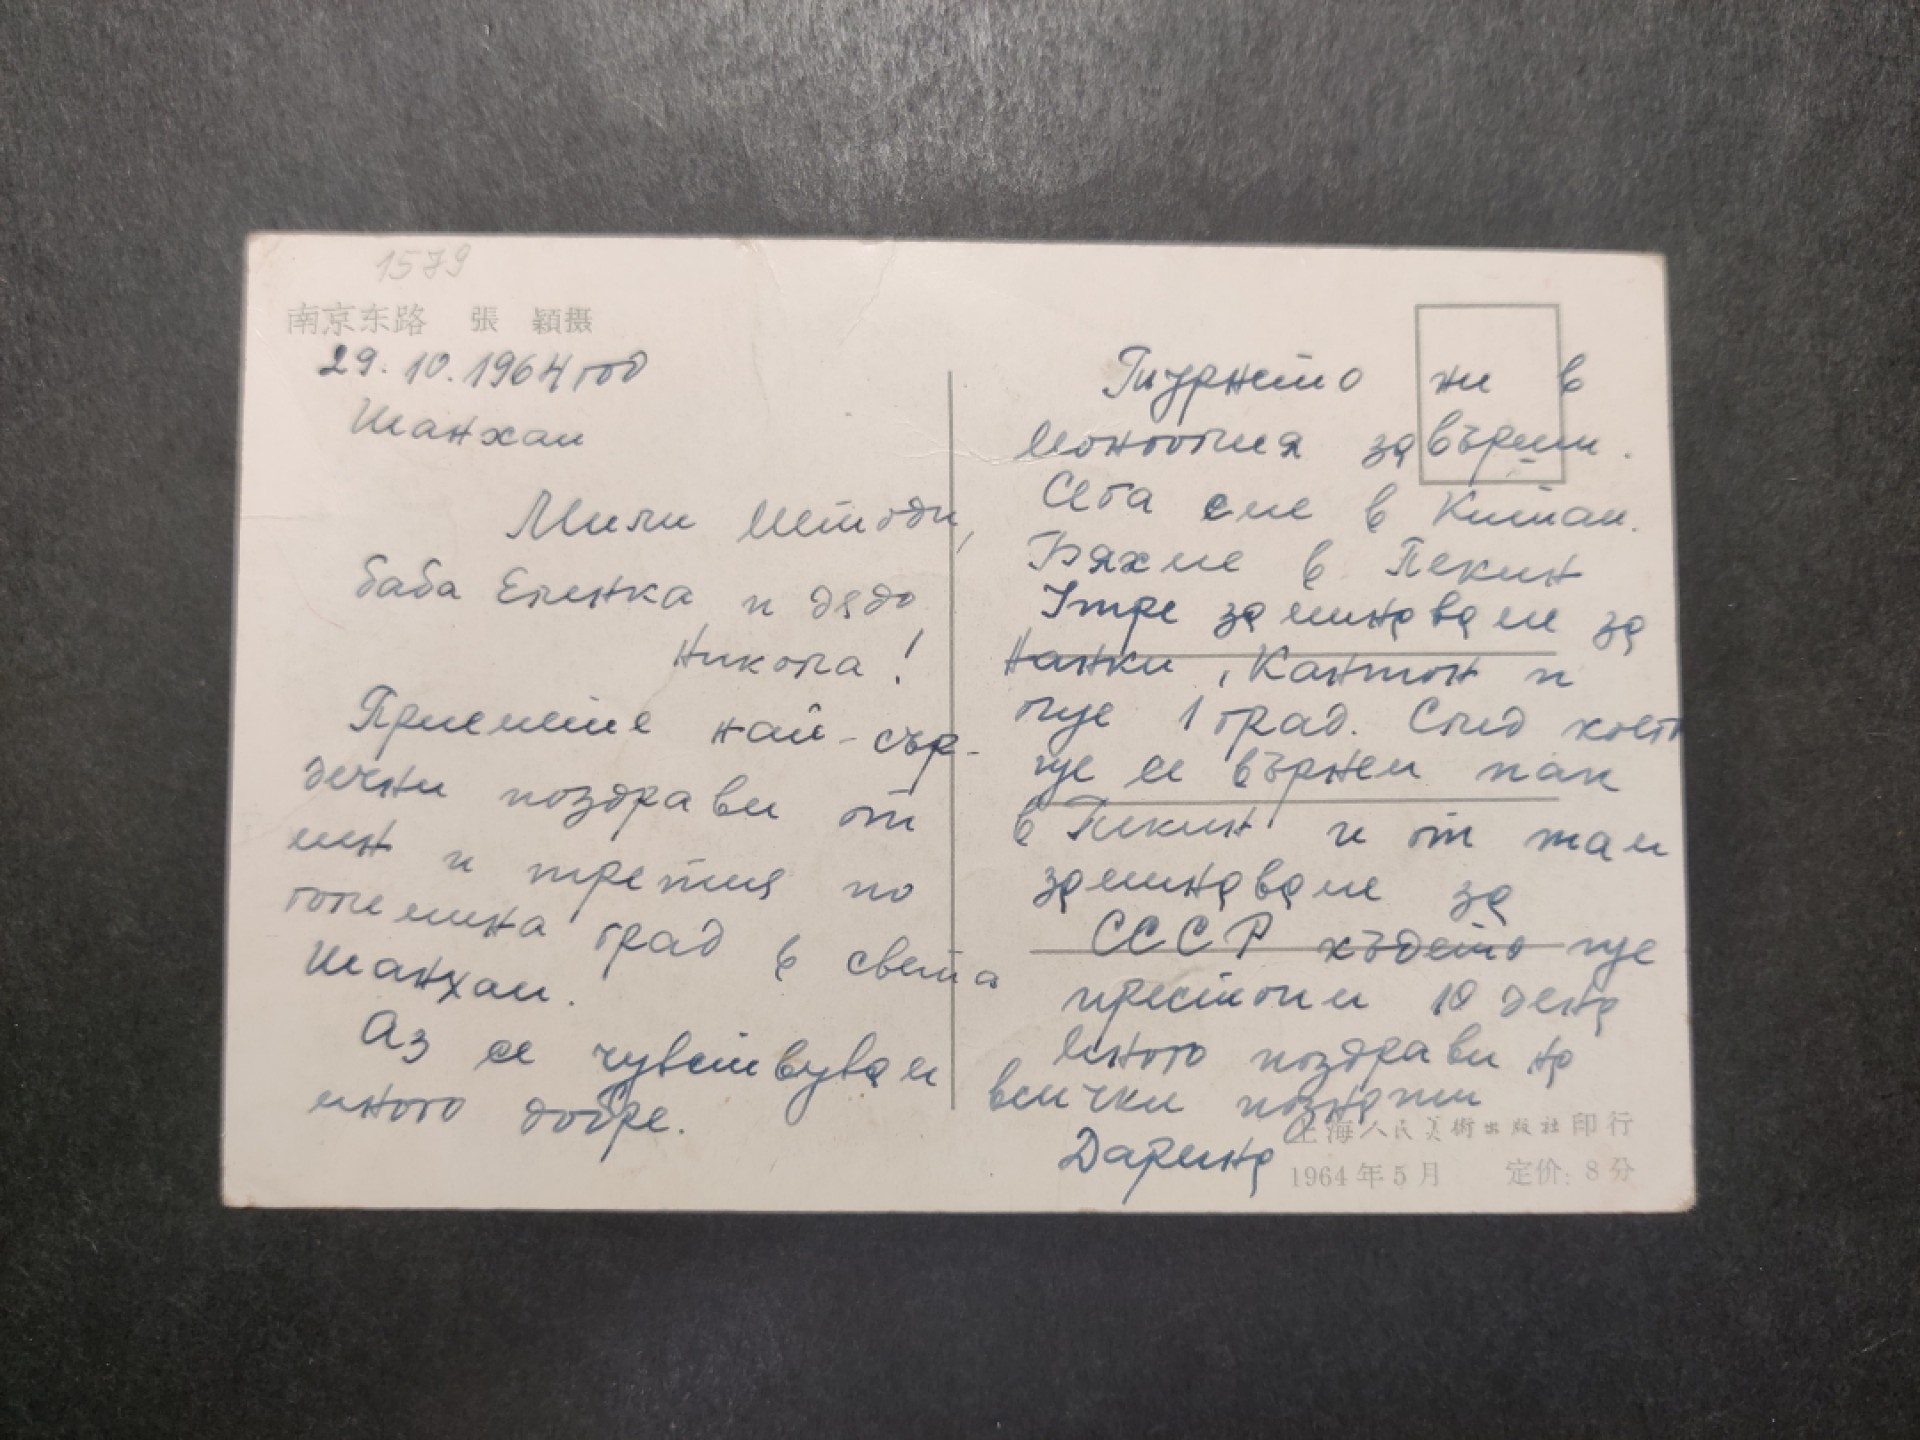 1579
南京东路 張 穎摄
29.10.1964 год
Шанхаи
Мили Методи,
баба Еленка и дядо
Никола!
Приемете най-сър-
дечни поздрави от
мен и третия по
големина град в света
Шанхаи.
Аз се чувствувам
много добре.
Турнето ни в
Монголия завърши.
Сега сме в Китаи.
Бяхме в Пекин
Утре заминаваме за
Нанки, Кантон и
още 1 град. След което
ще се върнем пак
в Пекин и от там
заминаваме за
СССР където ще
престоим 10 дена
Много поздрави на
всички познати
Дарина
上海人民美術出版社印行
1964年5月 定价: 8分